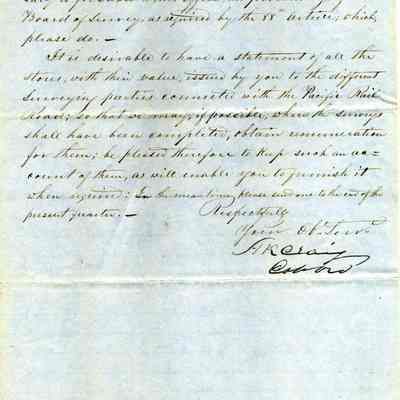 Board of Survey, as required by the 88th Article, which,
please do. —
It is desirable to have a statement of all the
stores, with their value, issued by you to the different
surveying parties connected with the Pacific Rail
Road; so that we may, if possible, when the surveys
shall have been completed, obtain remuneration
for them; be pleased therefore to keep such an ac-
count of them, as will enable you to furnish it
when required; In the mean time, please send one to the end of the
present quarter. —
Respectfully
Your Obt. Servt.
H K Craig
Col Ord